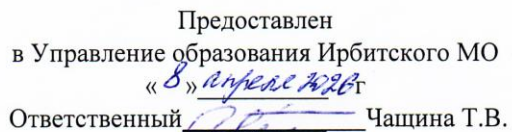 Предоставлен
в Управление образования Ирбитского МО
« 8 » апреля 2026 г
Ответственный Чащина Т.В.